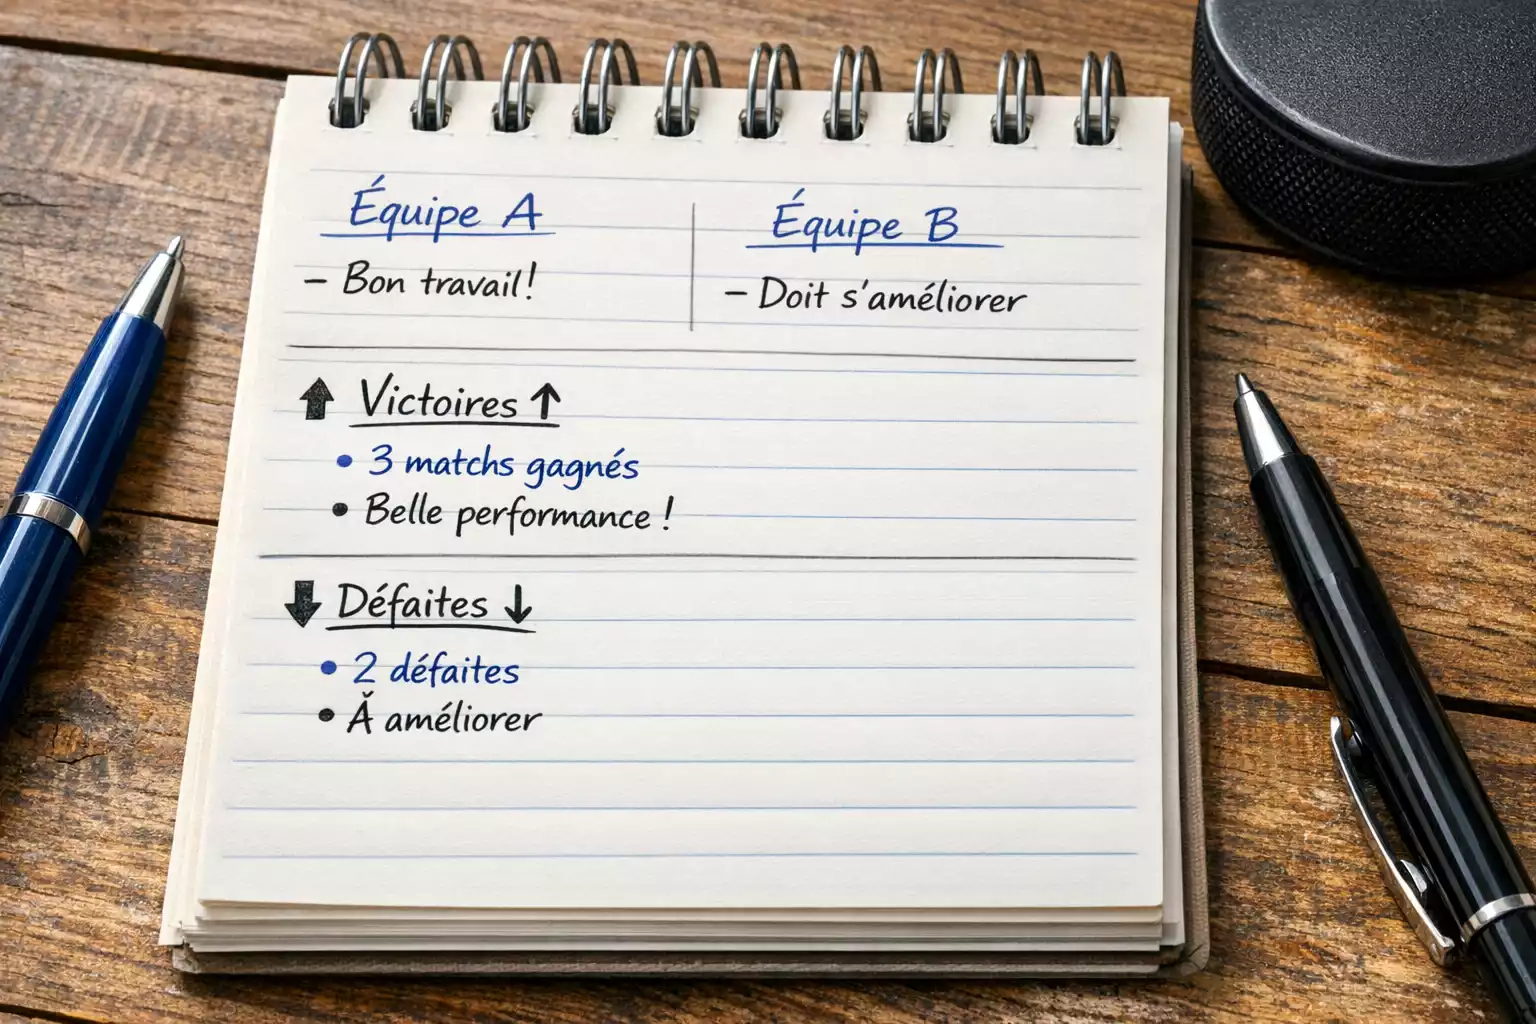 Équipe A
Équipe B
– Bon travail!
– Doit s'améliorer
⬆ Victoires ↑
• 3 matchs gagnés
• Belle performance !
⬇ Défaites ↓
• 2 défaites
• Ǎ améliorer